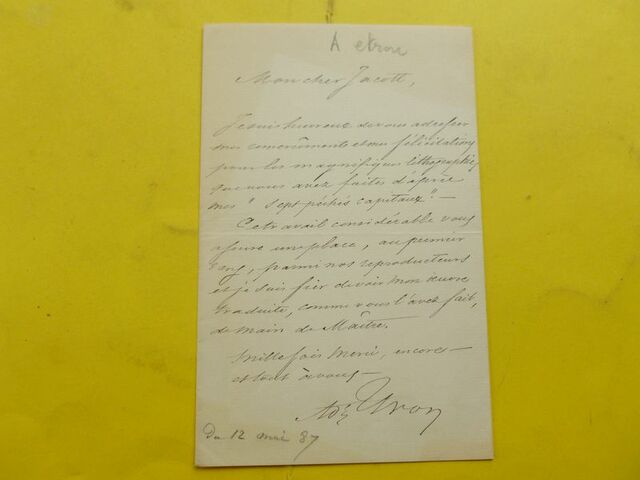 Mon cher Jacott,
Je suis heureux de vous adresser
mes remerciements et mes félicitations
pour les magnifiques lithographies
que vous avez faites d'après
mes "sept péchés capitaux" —
Ce travail considérable vous
assure une place, au premier
rang, parmi nos reproducteurs
et je suis fier de voir mon œuvre
traduite, comme vous l'avez fait,
de main de Maître.
Mille fois merci, encore —
et tout à vous —
Ad. Yvon
Du 12 mai 87